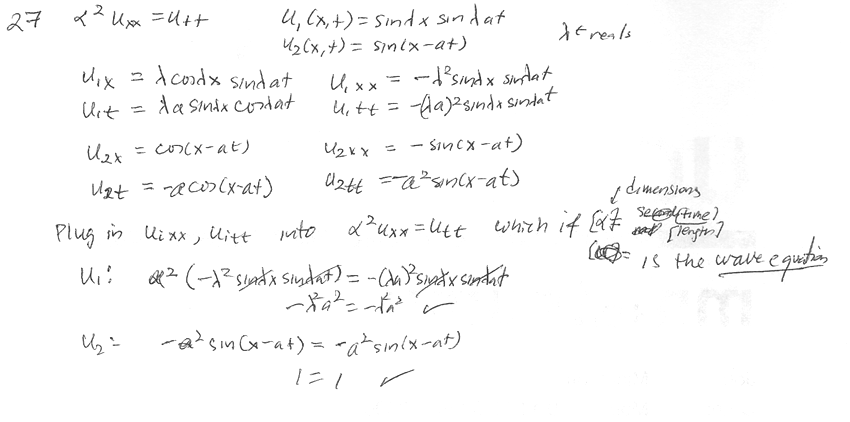 27 α² uxx = utt u₁(x,t) = sin λx sin λat
u₂(x,t) = sin(x-at) λ ∈ reals
u₁x = λ cos λx sin λat u₁xx = -λ² sin λx sin λat
u₁t = λa sin λx cos λat u₁tt = -(λa)² sin λx sin λat
u₂x = cos(x-at) u₂xx = - sin(x-at)
u₂t = -a cos(x-at) u₂tt = -a² sin(x-at)
dimensions
Plug in uixx, uitt into α² uxx = utt which if [α] (time)
[length]
= is the wave equation
u₁: α² (-λ² sin λx sin λat) = -(λa)² sin λx sin λat
-λ²a² = -λ²a² ✓
u₂ = -a² sin(x-at) = -a² sin(x-at)
1 = 1 ✓